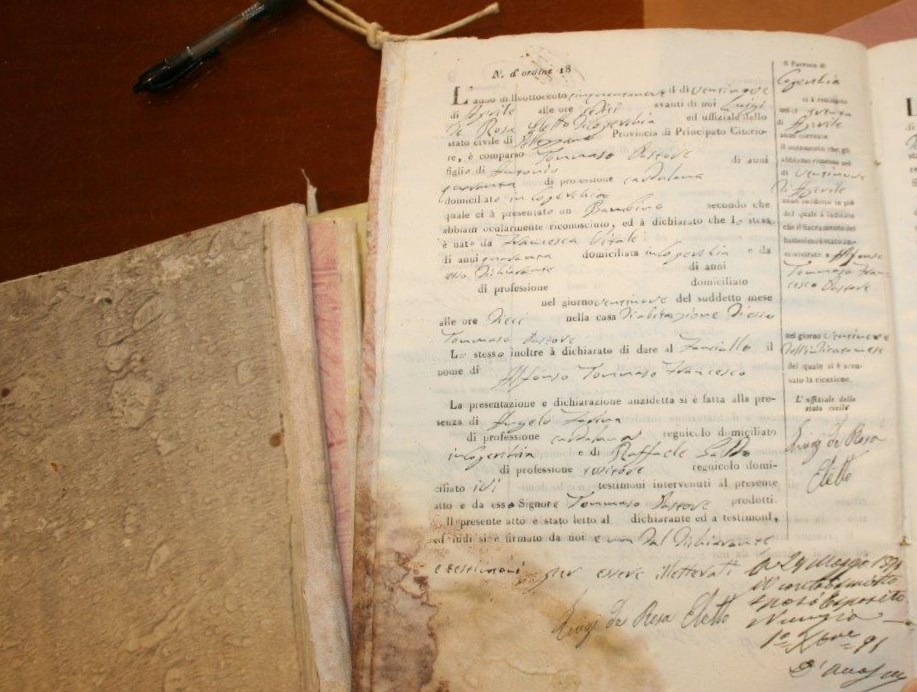 N. d'ordine 18
L'anno milleottocento cinquantanove il dì ventinove
di Aprile alle ore sedici avanti di noi Luigi
de Rosa Eletto di Cogerchia ed uffiziale dello
stato civile di Provincia di Principato Citerio-
re, è comparso Tommaso Pastore di anni
figlio di Antonio
quaranta di professione cardalana
domiciliato in Cogerchia secondo che
quale ci à presentato un Bambino
abbiam ocularmente riconosciuto, ed à dichiarato che Lo stesso
è nato da Francesca Vitale
di anni quaranta domiciliata in Cogerchia e da
esso Dichiarante di anni
di professione domiciliato
nel giorno ventinove del suddetto mese
alle ore Dieci nella casa Di abitazione Di esso
Tommaso Pastore
Lo stesso inoltre à dichiarato di dare al Fanciullo il
nome di
Alfonso Tommaso Francesco
La presentazione e dichiarazione anzidetta si è fatta alla pre-
senza di Angelo
di professione cardalana regnicolo domiciliato
in Cogerchia e di Raffaele
di professione regnicolo domi-
ciliato ivi testimoni intervenuti al presente
atto e da esso Signore Tommaso Pastore prodotti.
Il presente atto è stato letto al dichiarante ed a testimoni,
ed indi si è firmato da noi e non Dal Dichiarante
e testimoni per essere illetterati
Luigi de Rosa Eletto
Il Parroco di
Cogerchia
ci à restituito
nel
di Aprile
anno corrente
il notamento che gli
abbiamo rimesso nel
di ventinove
Di Aprile
anno suddetto in piè
del quale à indicato
che il Sacramento del
battesimo è stato am-
ministrato a Alfonso
Tommaso Fran
cesco Pastore
nel giorno ventinove
dell'indicato mese
del quale si è accu-
sato la ricezione.
L'uffiziale dello
stato civile
Luigi de Rosa
Eletto
A 24 Maggio
sposò Esposito
Nunzia
1° Xbre 91